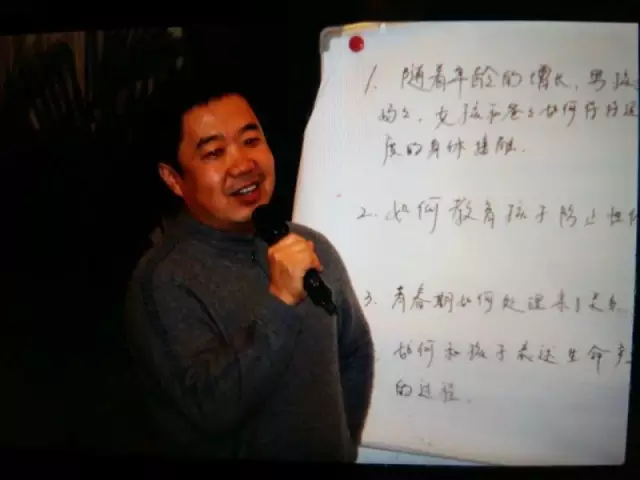 1. 随着年龄的增长，男孩
妈妈，女孩和爸爸如何保持适
度的身体接触.
2. 如何教育孩子防止性
3. 青春期如何处理亲子关系
如何和孩子表述生命产
的过程.